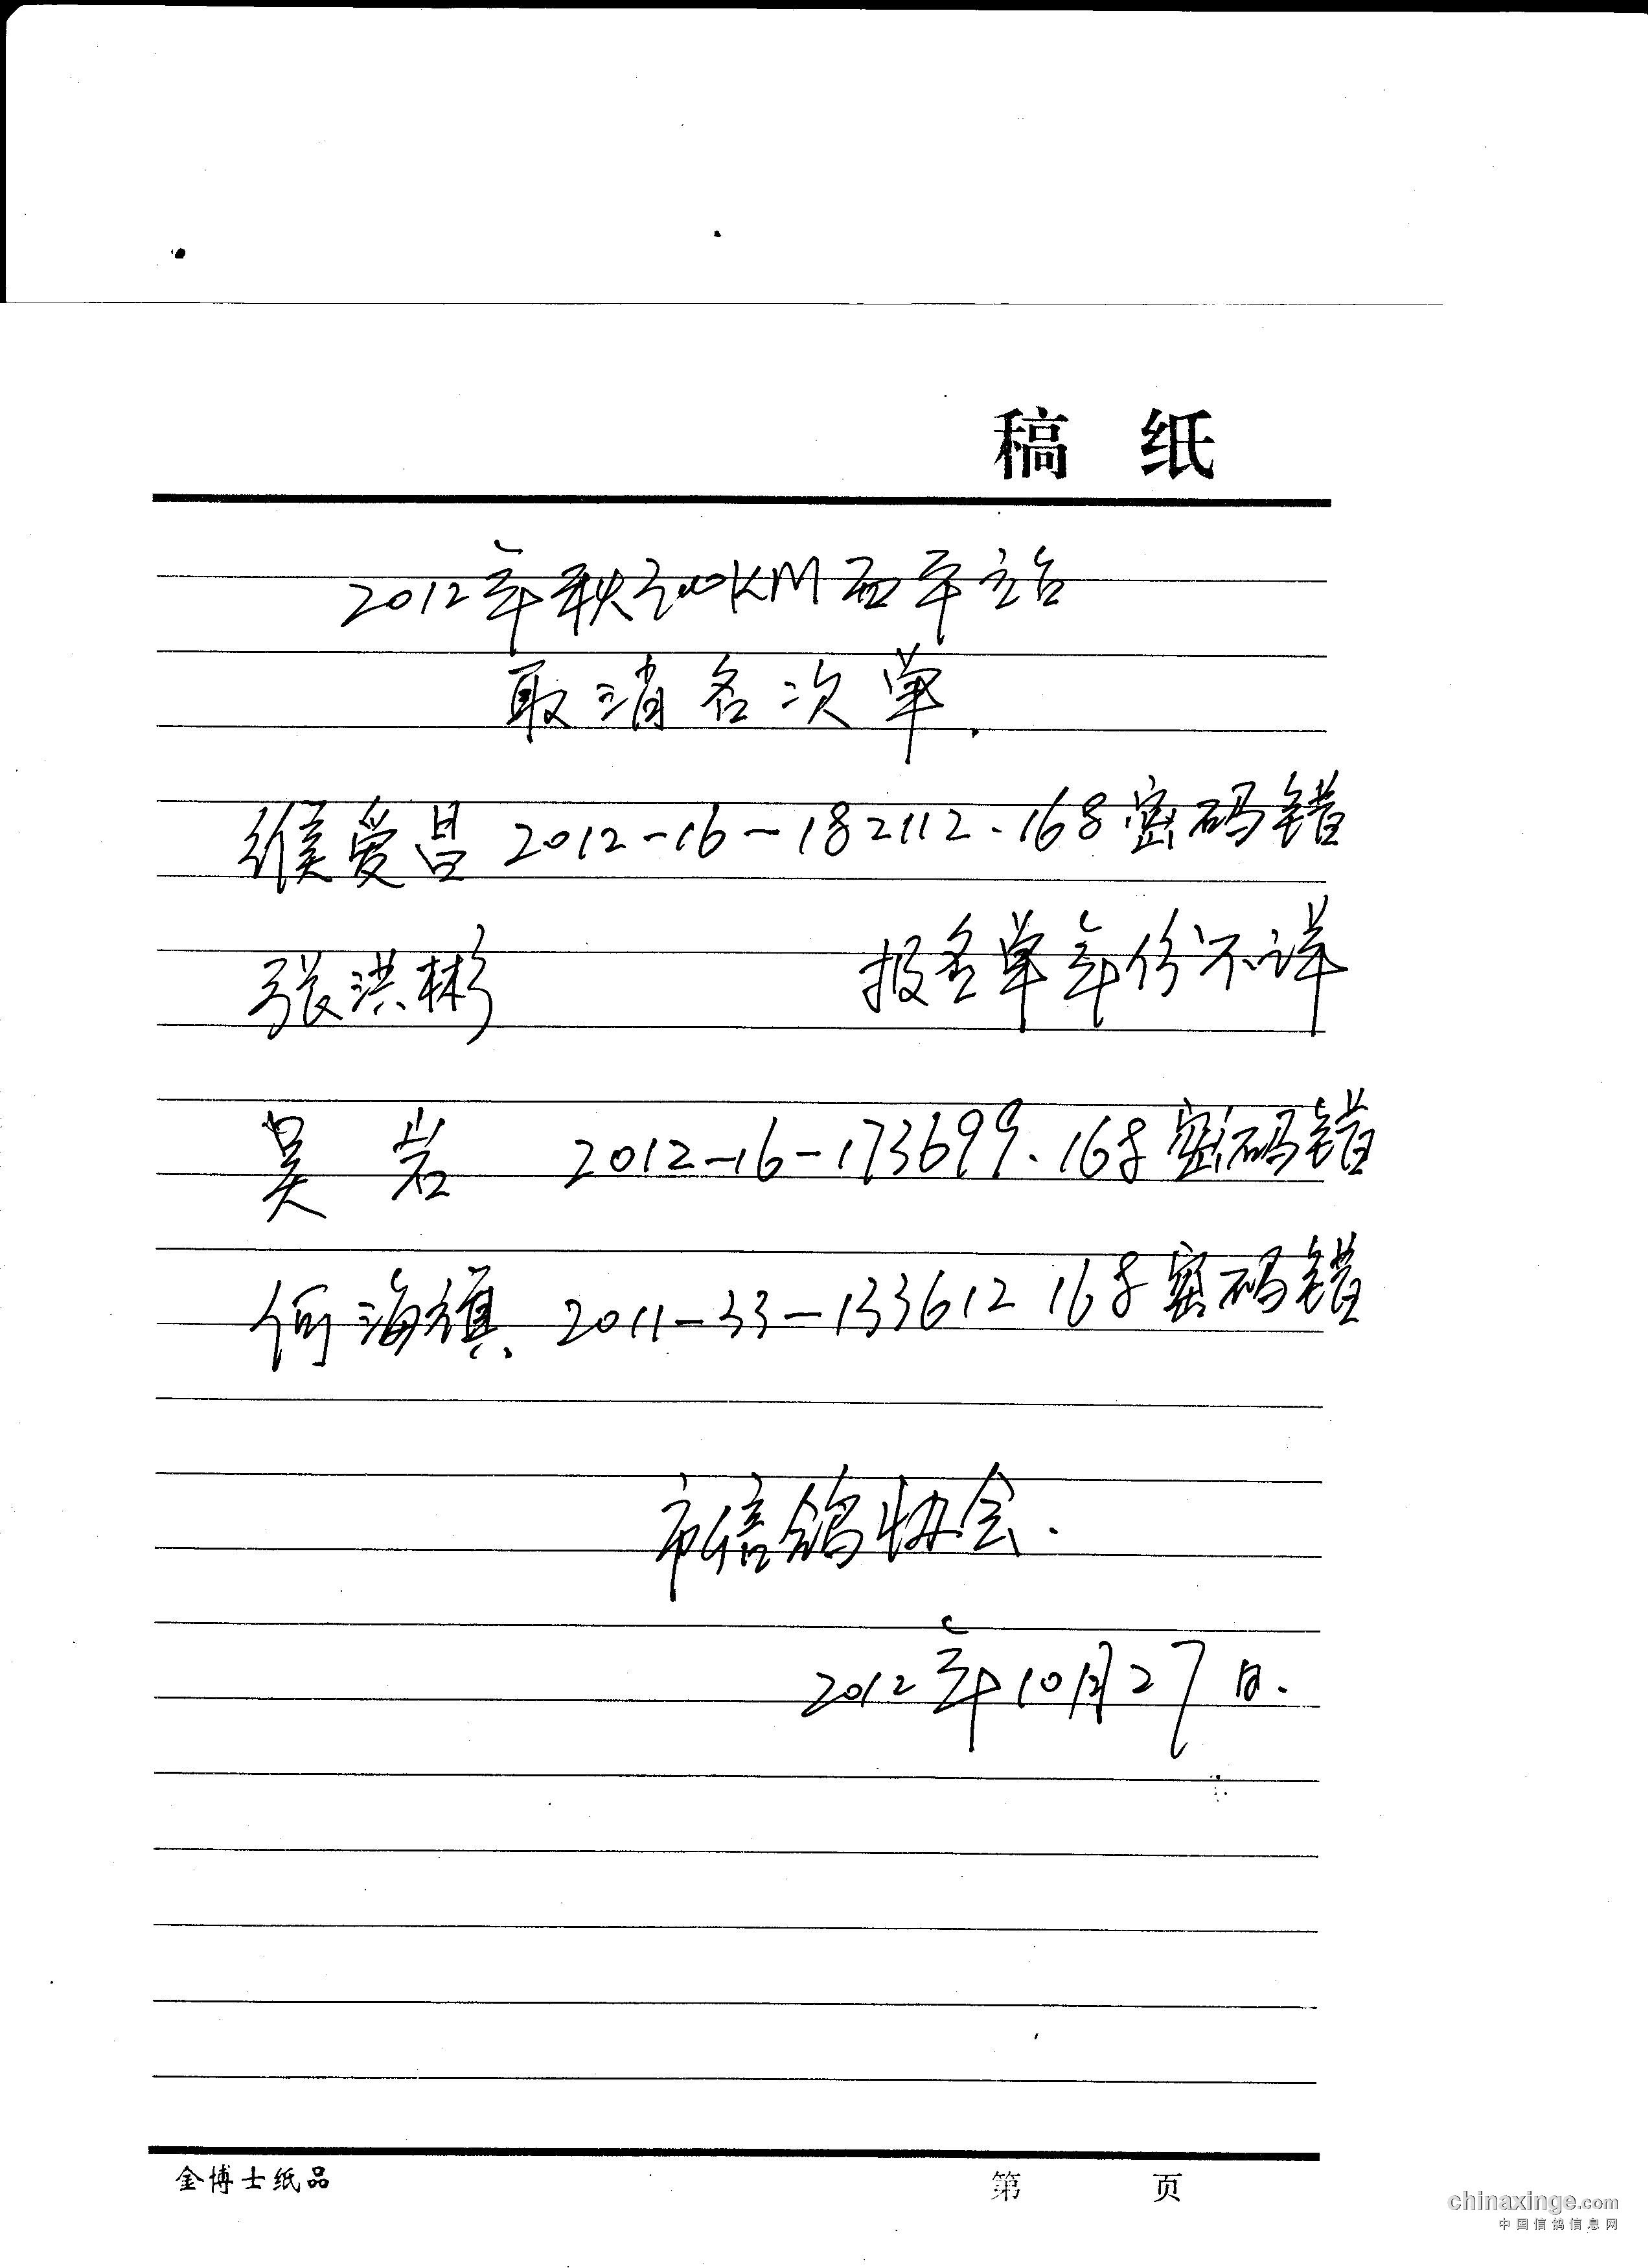 稿 纸
2012年秋300KM西平主台
取消名次单.
侯爱昌 2012-16-182112.168密码错
张洪彬 报名单年份不详
吴 岩 2012-16-173699.168密码错
何海镇. 2011-33-133612 168密码错
市信鸽协会.
2012年10月27日.
金博士纸品 第 页
chinaxinge.com
中国信鸽信息网